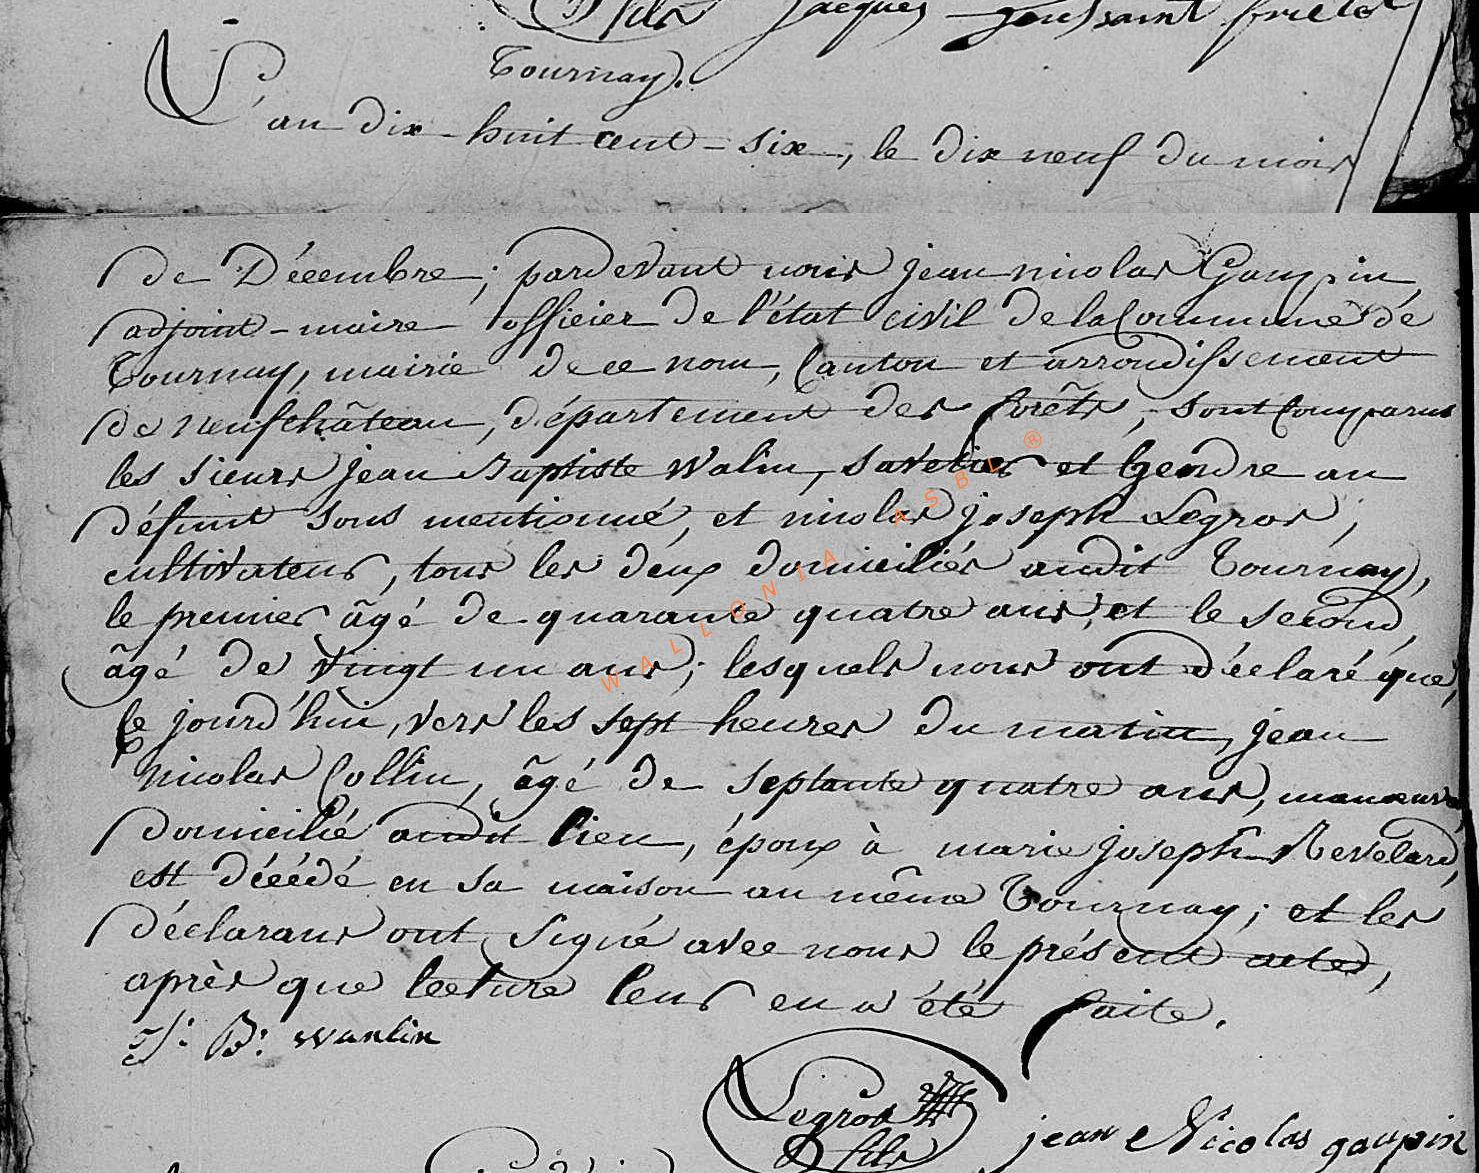 fils Jacques Toussaint
Tournay.
L'an dix-huit cent-six, le dix neuf du mois
de Décembre; pardevant nous jean nicolas Gaupin
adjoint-maire officier de l'état civil de la Commune de
Tournay, mairie de ce nom, Canton et arrondissement
de neufchâteau, département des forêts, sont Comparus
les sieurs jean Baptiste Walin, savetier et Gendre au
défunt sous mentionné, et nicolas joseph Legros,
cultivateur, tous les deux domiciliés audit Tournay,
le premier âgé de quarante quatre ans, et le second
âgé de vingt un ans; lesquels nous ont déclaré que
ce jourd'hui, vers les sept heures du matin, jean
nicolas Collin, âgé de septante quatre ans, manœuvre
domicilié audit lieu, époux à marie joseph Revelard,
est décédé en sa maison au même Tournay; et les
déclarans ont signé avec nous le présent acte,
après que lecture leur en a été faite.
J: B: wanlin
Legros
fils
jean Nicolas gaupin
WALLONIA ASBL ®